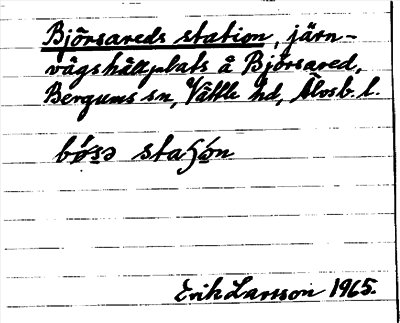 Björsareds station, järn-
vägshållplats å Björsared,
Bergums sn, Vättle hd, Älvsb. l.
bö́s̠ə staʃón
Erik Larsson 1965.